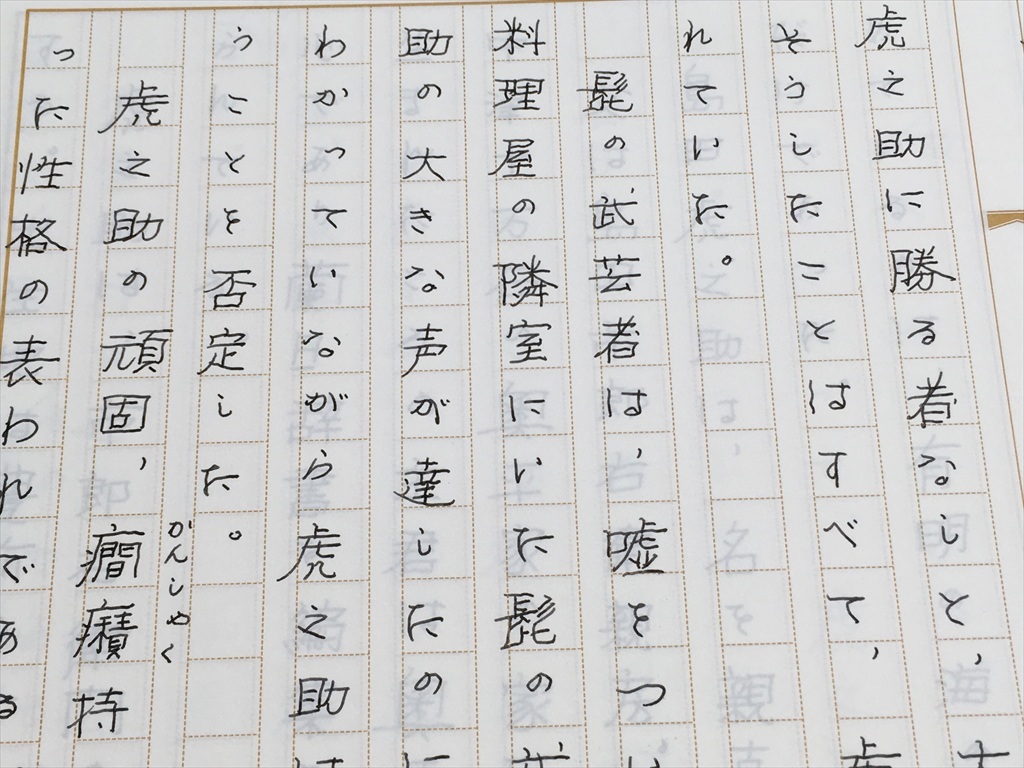 虎之助に勝る者なしと、
そうしたことはすべて、
れていた。
髭の武芸者は、嘘をつ
料理屋の隣室にいた髭の
助の大きな声が達したの
わかっていながら虎之助
うことを否定した。
虎之助の頑固、癇癪持
かんしゃく
った性格の表われである